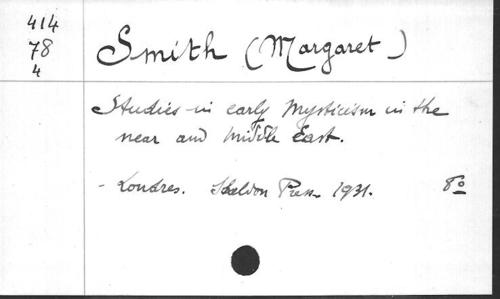 414
78
4
Smith (Margaret)
Studies in early Mysticism in the
near and Middle East.
- Londres. Sheldon Press 1931. 8º